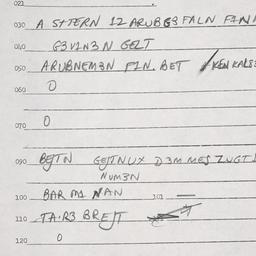 021
030 A STTERN 12 ARUBGB FALN FIN
040 G3V1N3N GELT
050 ARUBNEM3N FIN. BET
060 O
070 O
090 BEJTN GEJTNUX D3M MES ZUGT
NUM3N
100 BAR MA NAN 101 —
110 TA.R3 BREJT
120 O